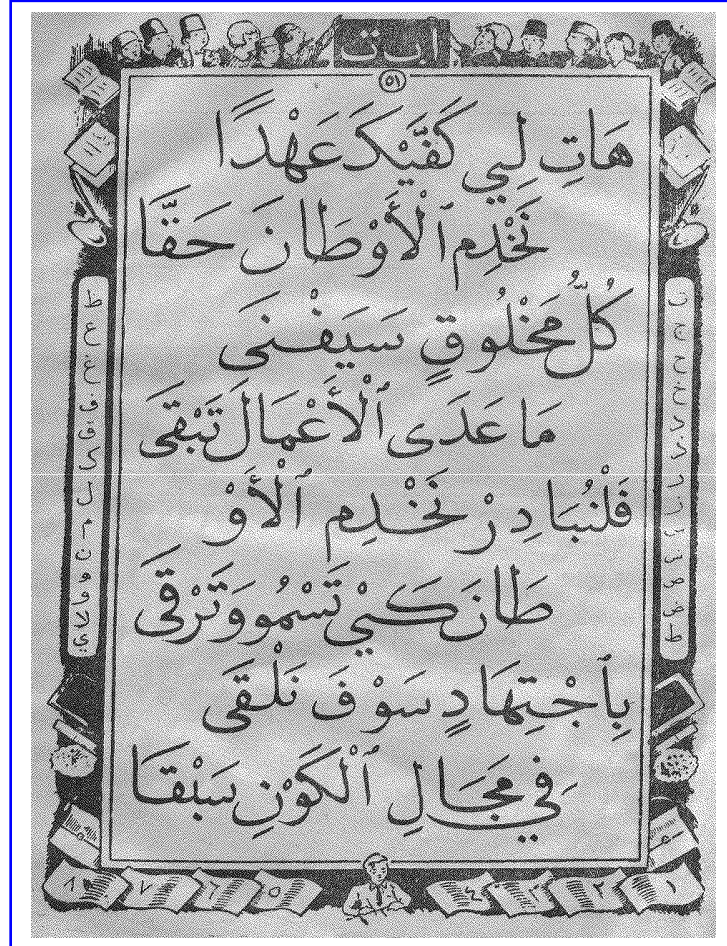 أ ب ت
٥١
هَاتِ لِي كَفَّيْكَ عَهْدًا
نَخْدِم ٱلْأَوْطَانَ حَقَّا
كُلُّ مَخْلُوقٍ سَيَفْنَى
مَا عَدَى ٱلْأَعْمَالَ تَبْقَى
فَلْنُبَادِرْ نَخْدِم ٱلْأَوْ
طَانَ كَيْ تَسْمُو وَتَرْقَى
بِٱجْتِهَادٍ سَوْفَ نَلْقَى
فِي مَجَالِ ٱلْكَوْنِ سَبْقَا
ط ع غ ف ق ك ل م ن و لا ي
١ ٢ ٣ ٤ ٥ ٦ ٧ ٨